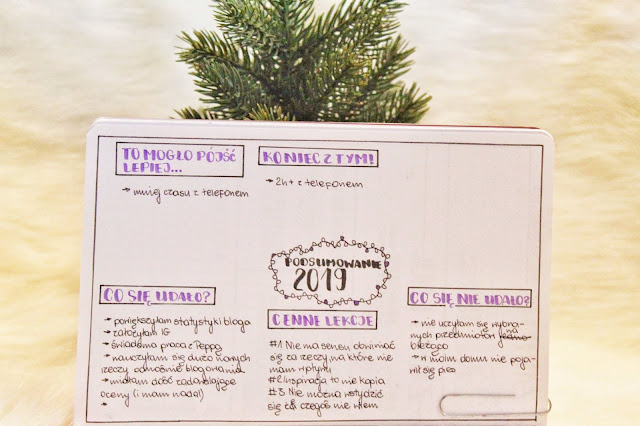 TO MOGŁO PÓJŚĆ
LEPIEJ...
→ mniej czasu z telefonem
KONIEC Z TYM!
→ 2h+ z telefonem
PODSUMOWANIE
2019
CO SIĘ UDAŁO?
→ powiększyłam statystyki bloga
→ założyłam IG
→ świadoma praca z Peppą
→ nauczyłam się dużo nowych
rzeczy odnośnie blogowania
→ miałam dość zadowalające
oceny (i mam nadal)
→
CENNE LEKCJE
#1 Nie ma sensu obwiniać
się za rzeczy, na które nie
mam wpływu
#2 Inspiracja to nie kopia
#3 Nie można wstydzić
się, że czegoś nie wiem
CO SIĘ NIE UDAŁO?
→ nie uczyłam się wybra-
nych przedmiotów na
bieżąco
→ w moim domu nie poja-
wił się pies